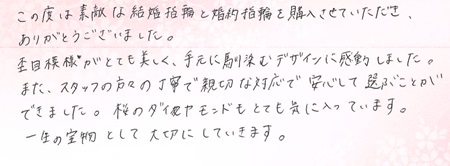 この度は素敵な結婚指輪と婚約指輪を購入させていただき、
ありがとうございました。
杢目模様がとても美しく、手元に馴染むデザインに感動しました。
また、スタッフの方々の丁寧で親切な対応で安心して選ぶことが
できました。桜のダイヤモンドもとても気に入っています。
一生の宝物として大切にしていきます。